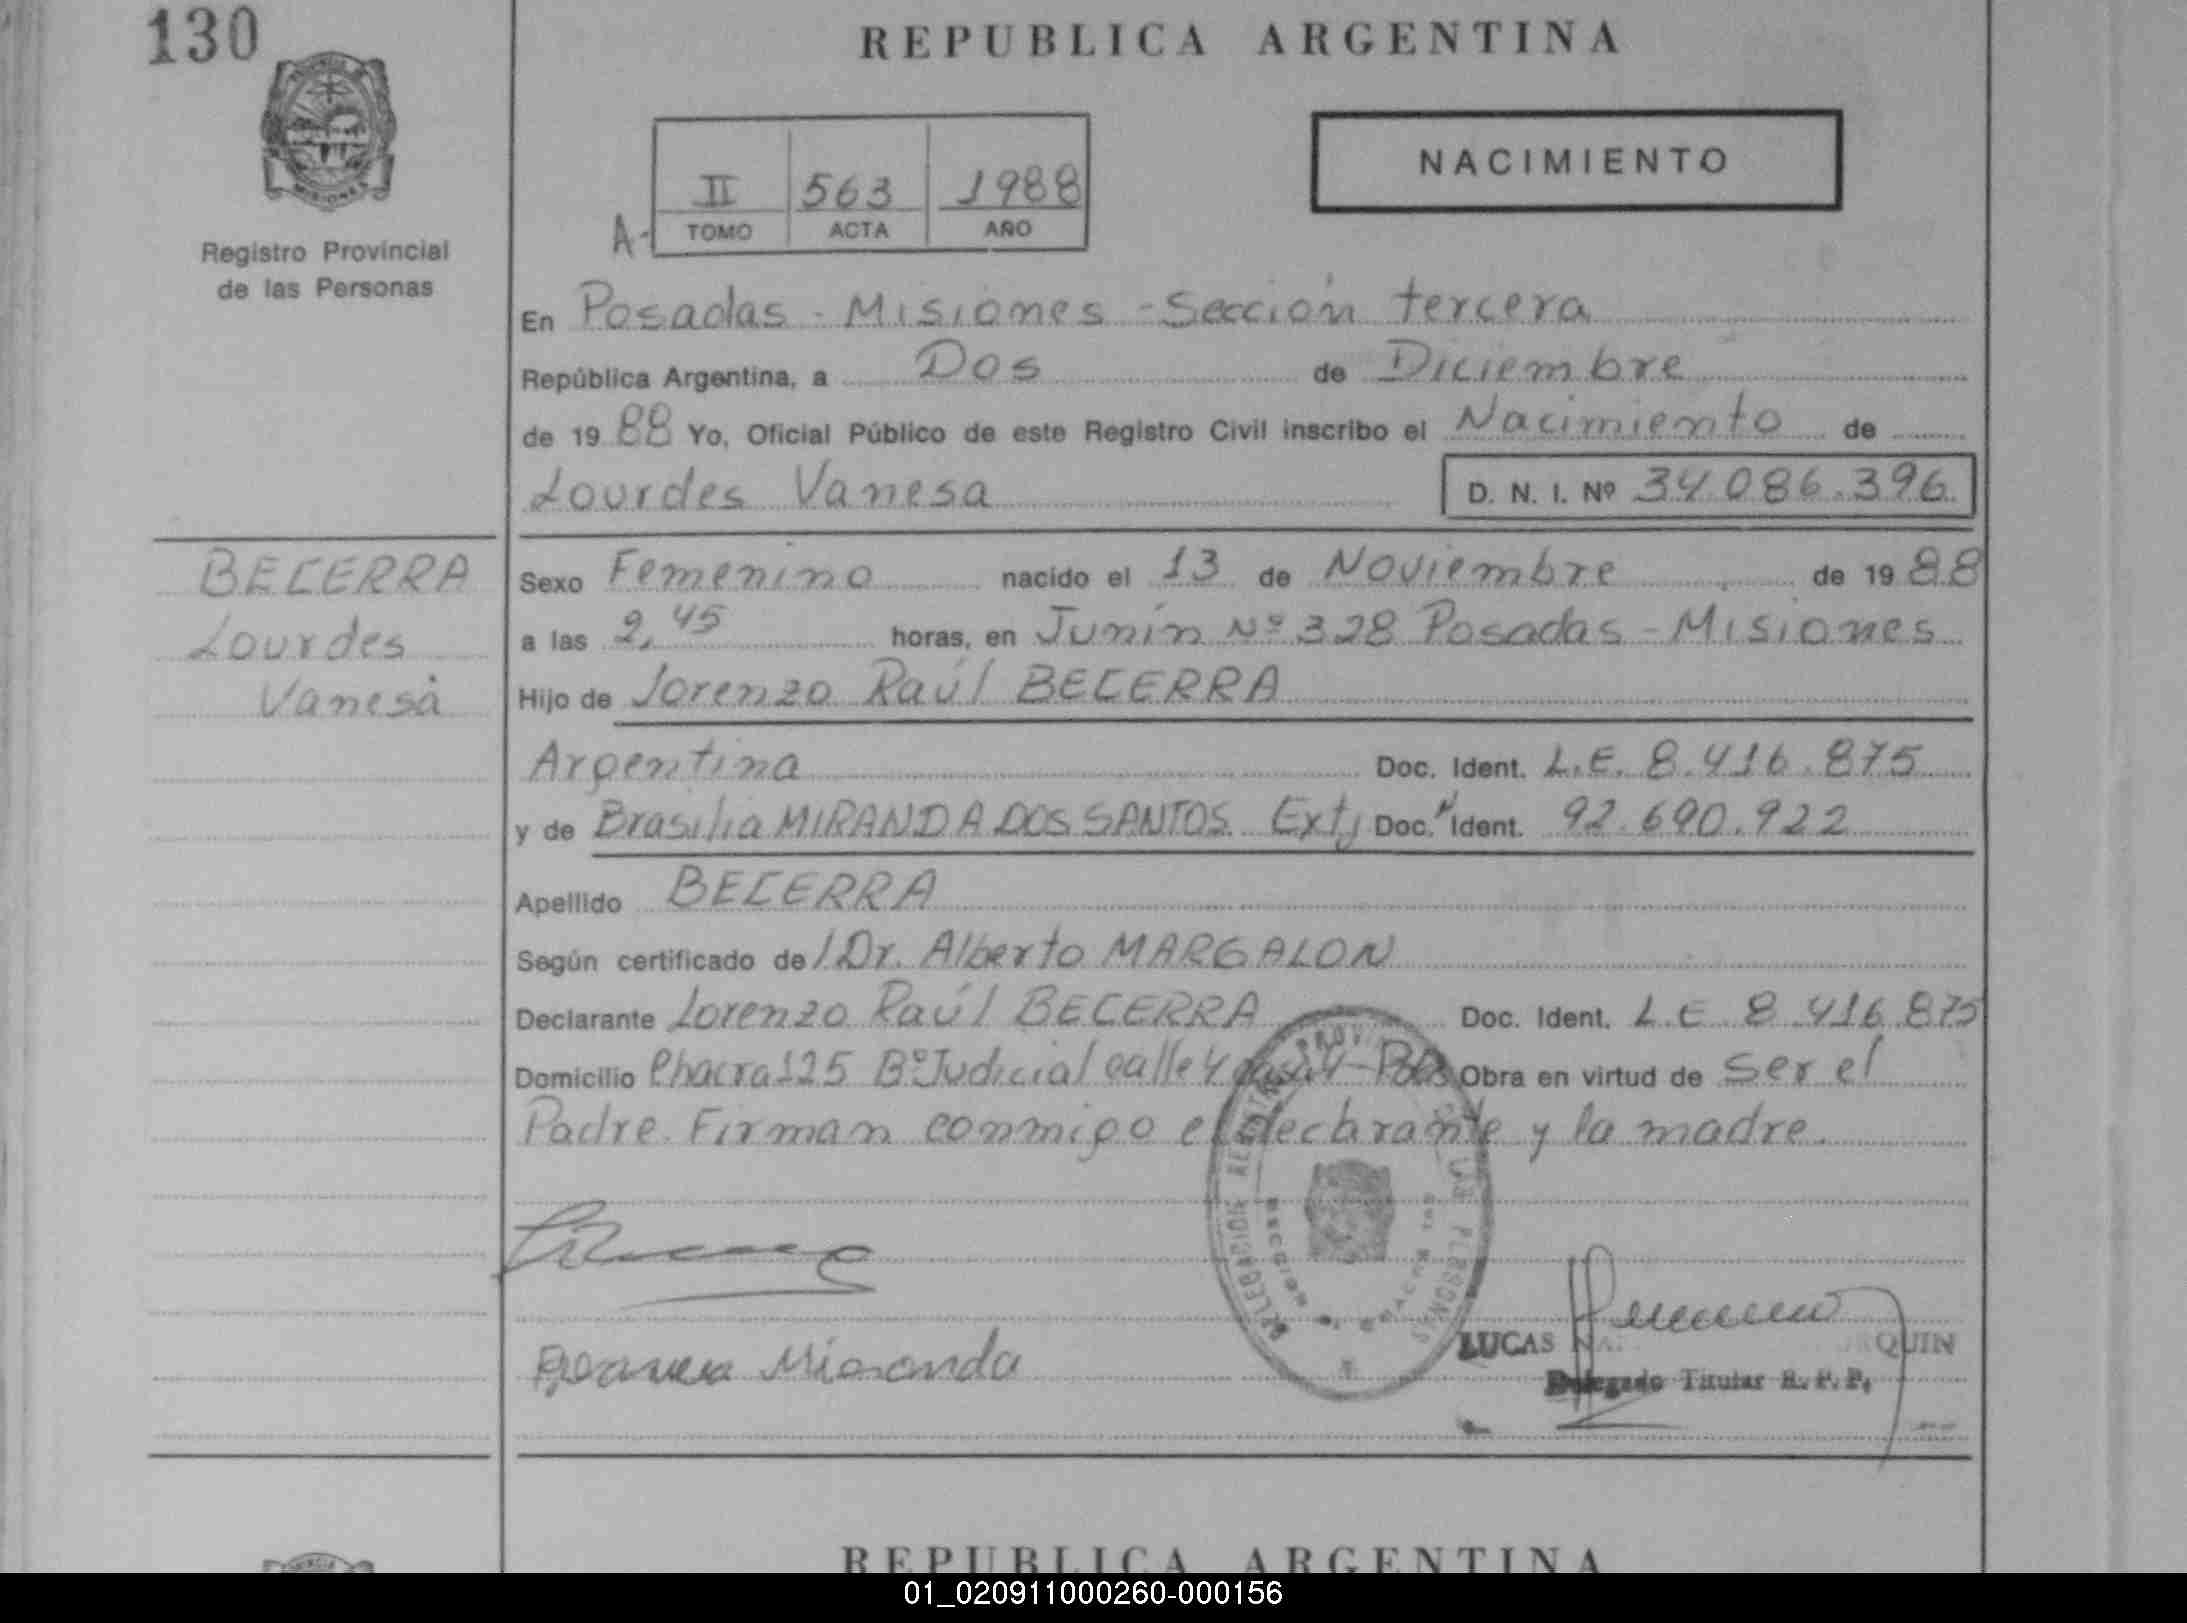 130
REPUBLICA ARGENTINA
PROVINCIA DE
MISIONES
Registro Provincial
de las Personas
NACIMIENTO
II 563 1988
A- TOMO ACTA AÑO
En Posadas - Misiones - Sección tercera
República Argentina, a Dos de Diciembre
de 19 88 Yo, Oficial Público de este Registro Civil inscribo el Nacimiento de
Lourdes Vanesa D. N. I. Nº 34.086.396
BECERRA
Lourdes
Vanesa
Sexo Femenino nacido el 13 de Noviembre de 19 88
a las 2,45 horas, en Junín Nº 328 Posadas - Misiones
Hijo de Lorenzo Raúl BECERRA
Argentina Doc. Ident. L.E. 8.416.875
y de Brasilia MIRANDA DOS SANTOS Extj Doc. Ident. 92.690.922
Apellido BECERRA
Según certificado de l Dr. Alberto MARGALON
Declarante Lorenzo Raúl BECERRA Doc. Ident. L.E 8.416.875
Domicilio Chacra 125 Bº Judicial calle 4 casa 4 - Pdas Obra en virtud de ser el
Padre. Firman conmigo el declarante y la madre.
DELEGACION
DE LAS PERSONAS
Miranda
LUCAS
Delegado Titular R. P. P.
REPUBLICA ARGENTINA
01_020911000260-000156